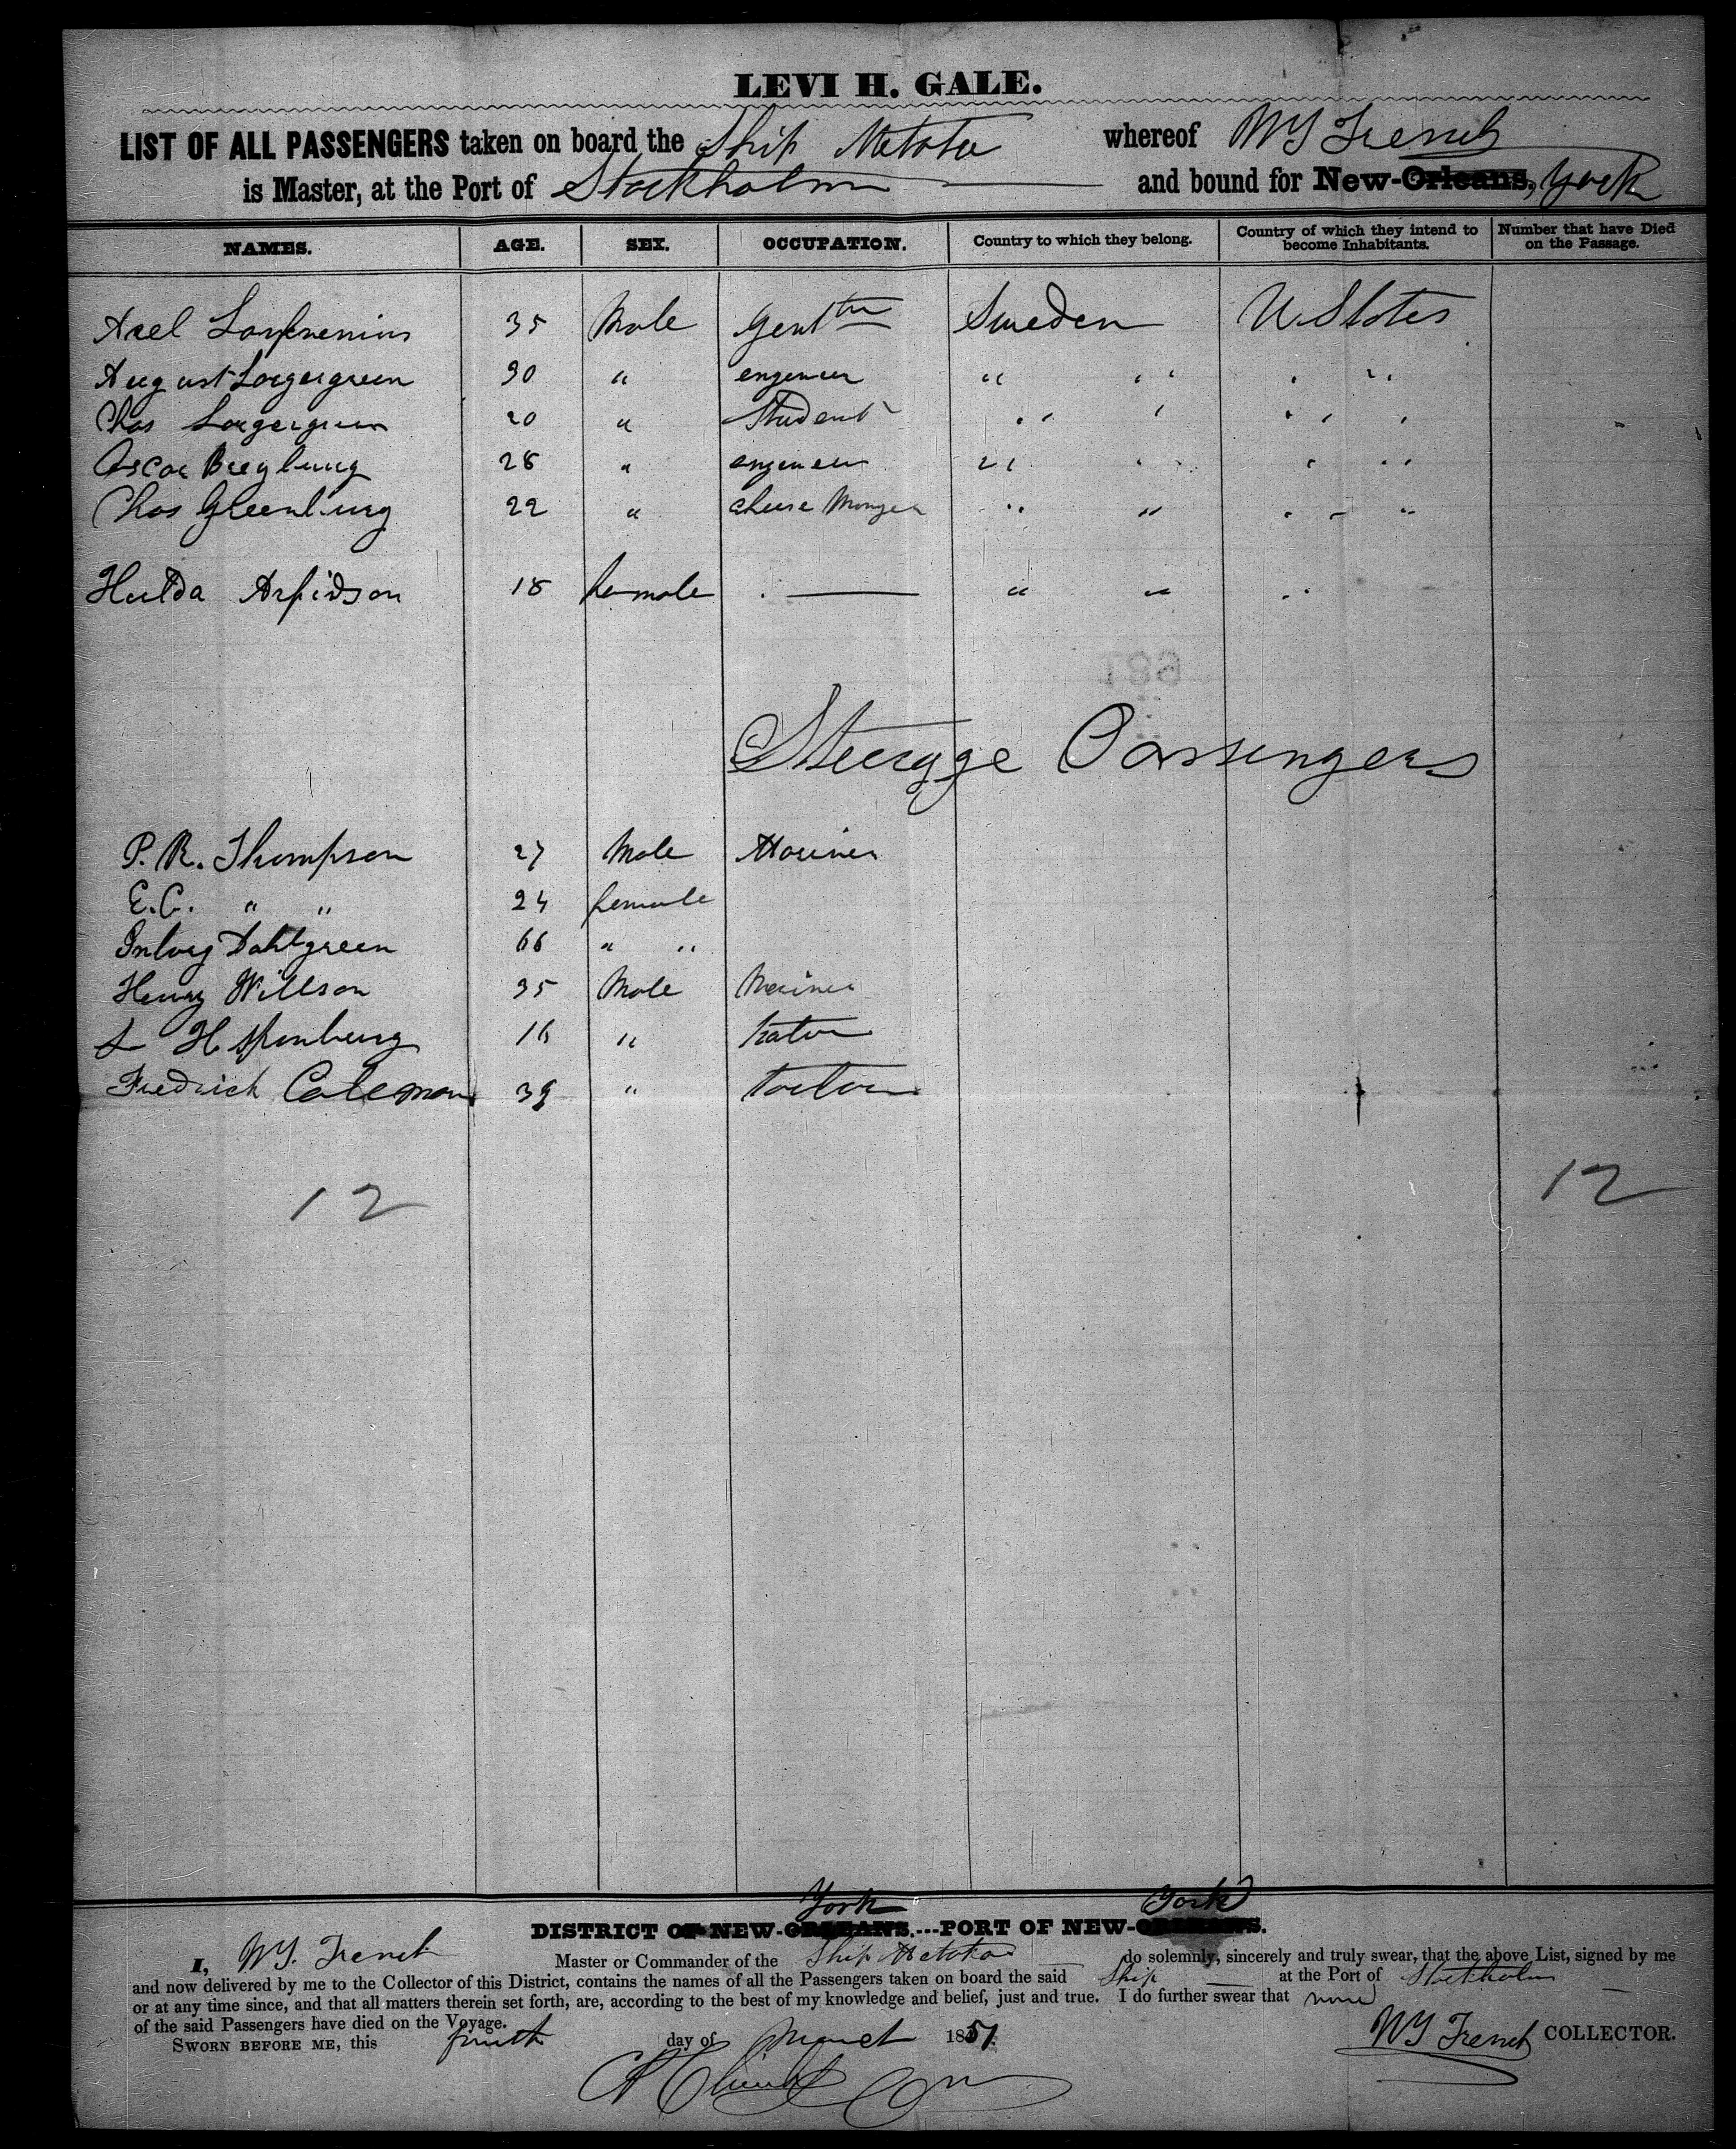 LEVI H. GALE.
LIST OF ALL PASSENGERS taken on board the Ship whereof W French
is Master, at the Port of Stockholm and bound for New-Orleans, York
NAMES. AGE. SEX. OCCUPATION. Country to which they belong. Country of which they intend to become Inhabitants. Number that have Died on the Passage.
Axel 35 Male Gent Sweden U. States
August Loegergreen 30 " engeneer " " " "
Chas Loegergreen 20 " Student " " " "
Oscar 28 " engeneer " " " "
Chas Greenburg 22 " cheese Monger " " " "
Hulda Arfidson 18 female — " " "
Steerage Passengers
P. R. Thompson 27 Male Mariner
E. C. " " 24 female
Dahlgreen 66 " "
Henry Willson 35 Male Mariner
16 "
Fredrich Coleman 39 "
12 12
York York
DISTRICT OF NEW-ORLEANS.---PORT OF NEW-ORLEANS.
I, W French Master or Commander of the Ship do solemnly, sincerely and truly swear, that the above List, signed by me
and now delivered by me to the Collector of this District, contains the names of all the Passengers taken on board the said Ship at the Port of Stockholm
or at any time since, and that all matters therein set forth, are, according to the best of my knowledge and belief, just and true. I do further swear that none
of the said Passengers have died on the Voyage.
SWORN BEFORE ME, this day of August 1851 W French COLLECTOR.